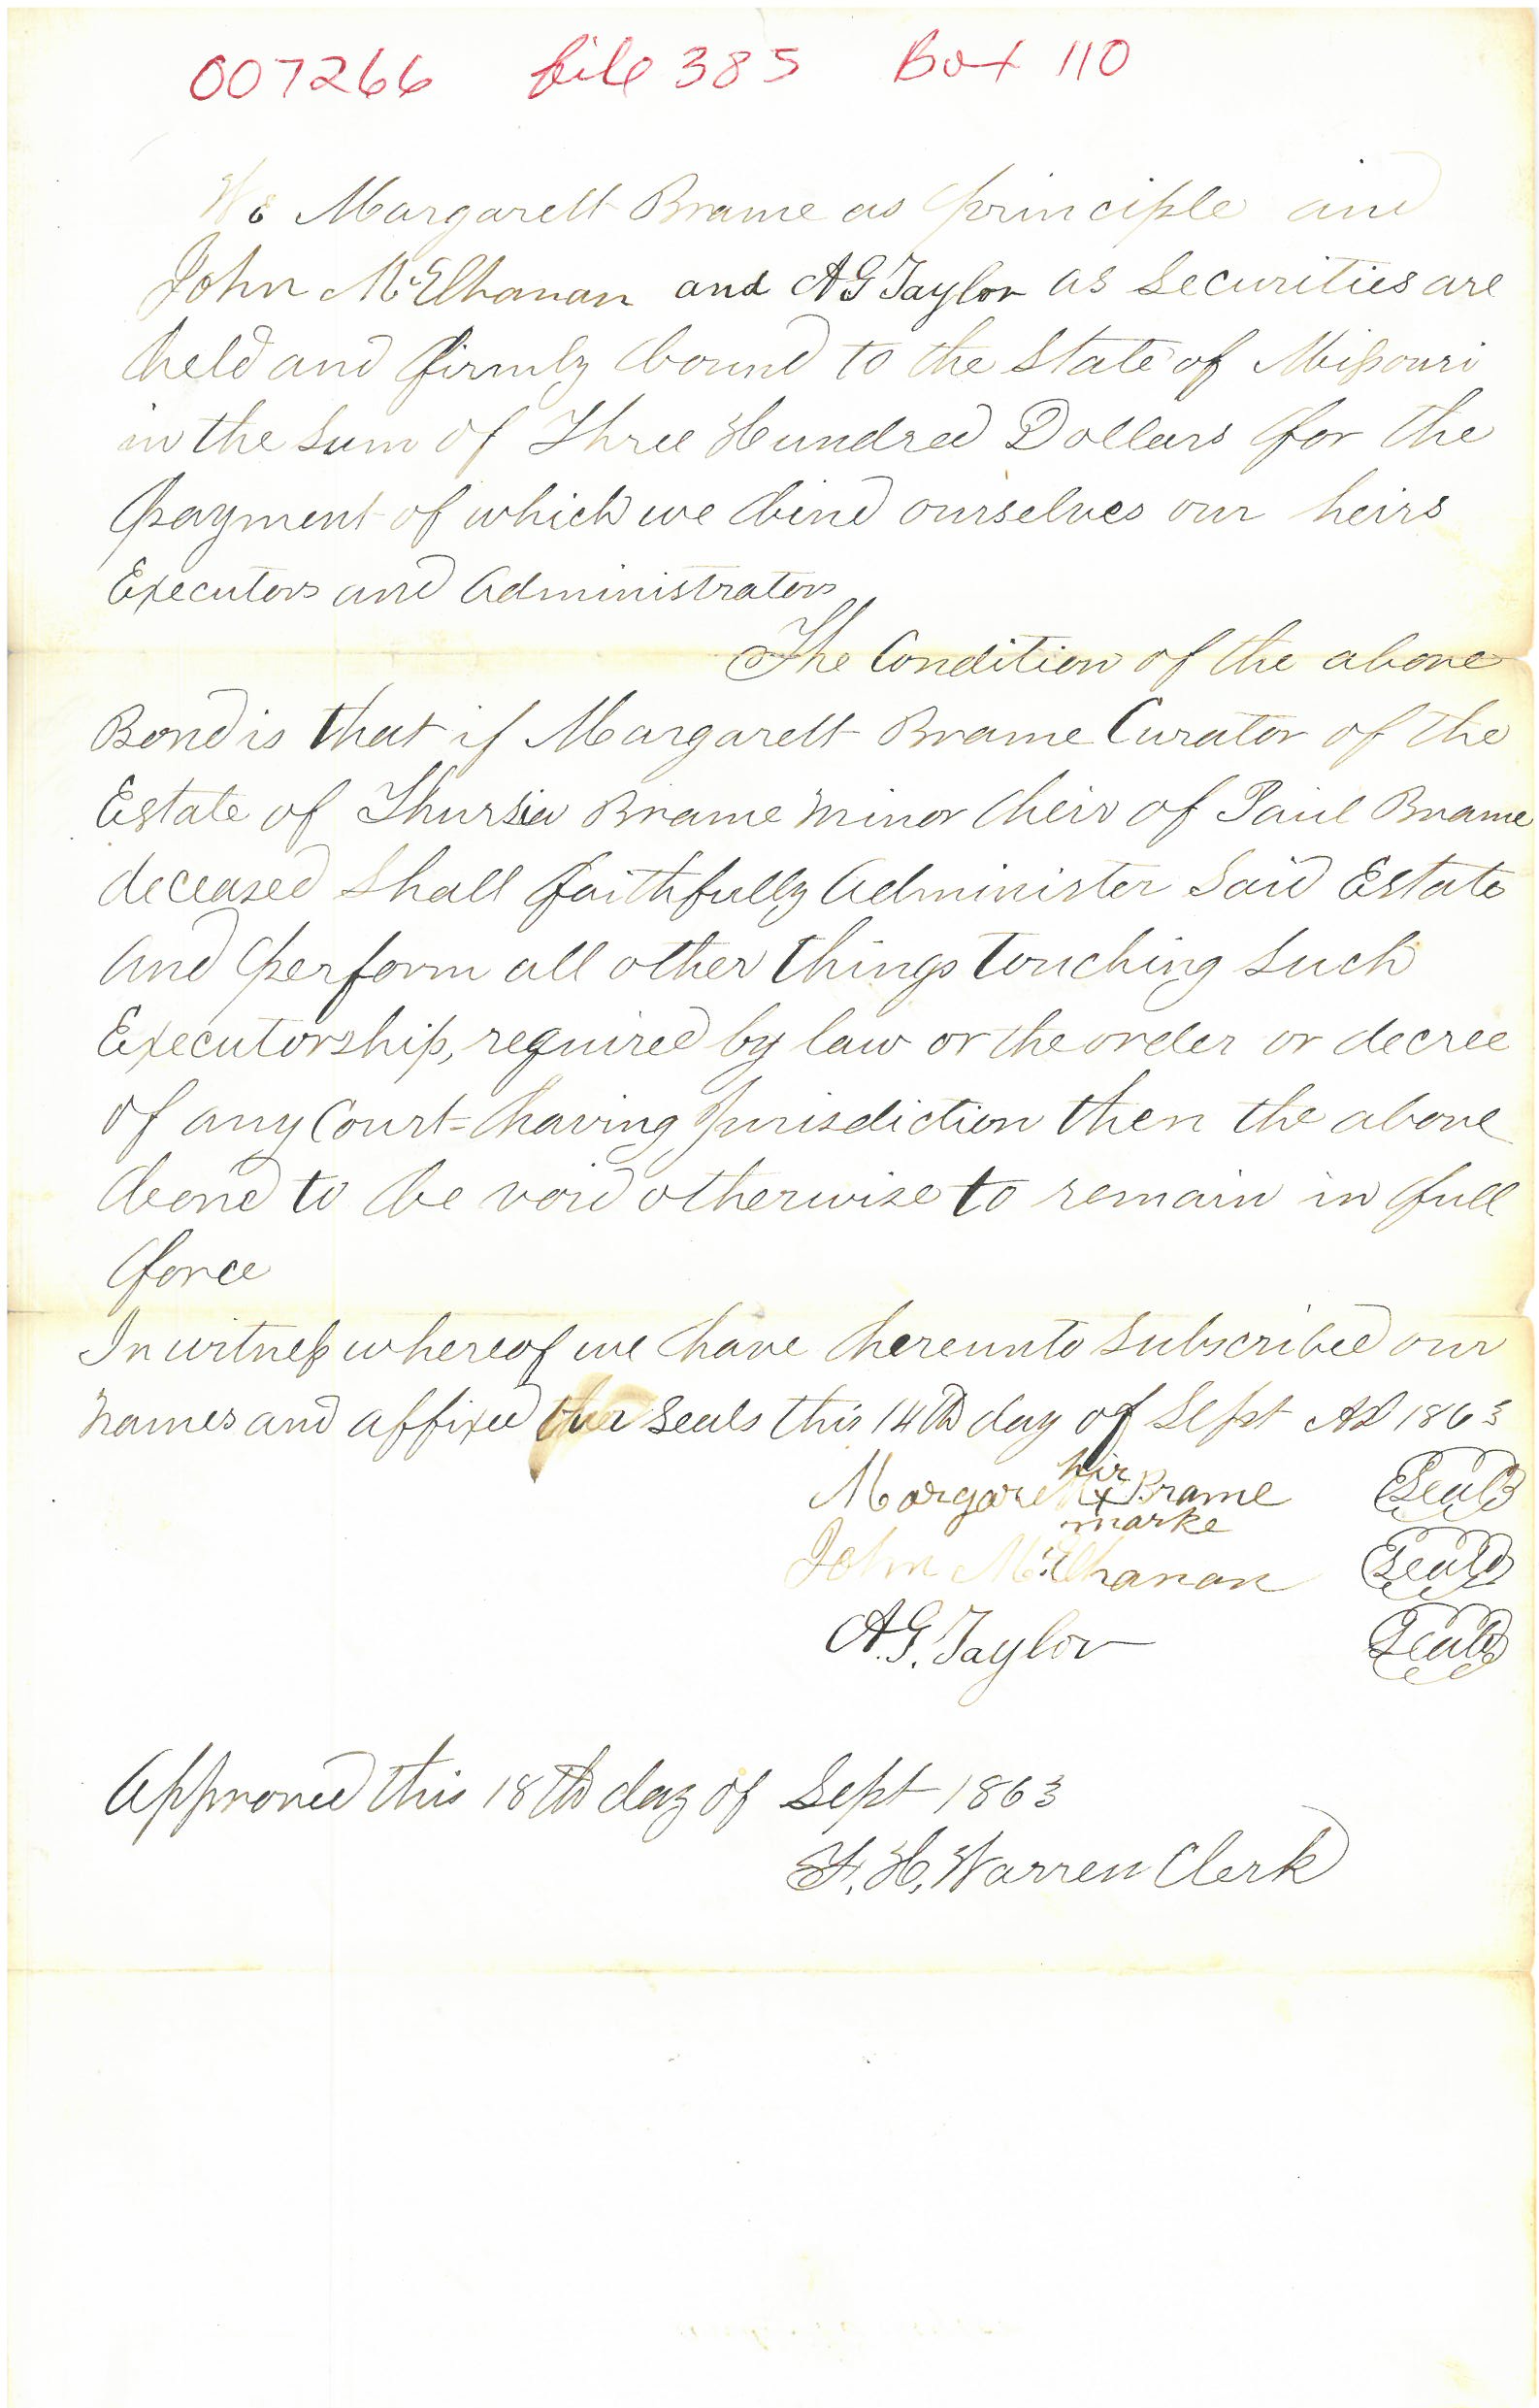 007266 file 385 Box 110
We Margarett Brame as principle and
John McElhanan and AG Taylor as Securities are
held and firmly bound to the State of Missouri
in the sum of Three Hundred Dollars for the
payment of which we bind ourselves our heirs
Executors and Administrators
The Condition of the above
Bond is that if Margarett Brame Curator of the
Estate of Thursia Brame minor heir of Paul Brame
deceased shall faithfully Administer Said Estate
And perform all other things touching such
Executorship, required by law or the order or decree
of any Court having Jurisdiction then the above
bond to be void otherwise to remain in full
force
In witness whereof we have hereunto subscribed our
names and affixed our seals this 14th day of Sept AD 1863
hir
Margarett X Brame Seal
marke
John McElhanan Seal
A.G. Taylor Seal
Approved this 18th day of Sept 1863
F. H. Warren Clerk